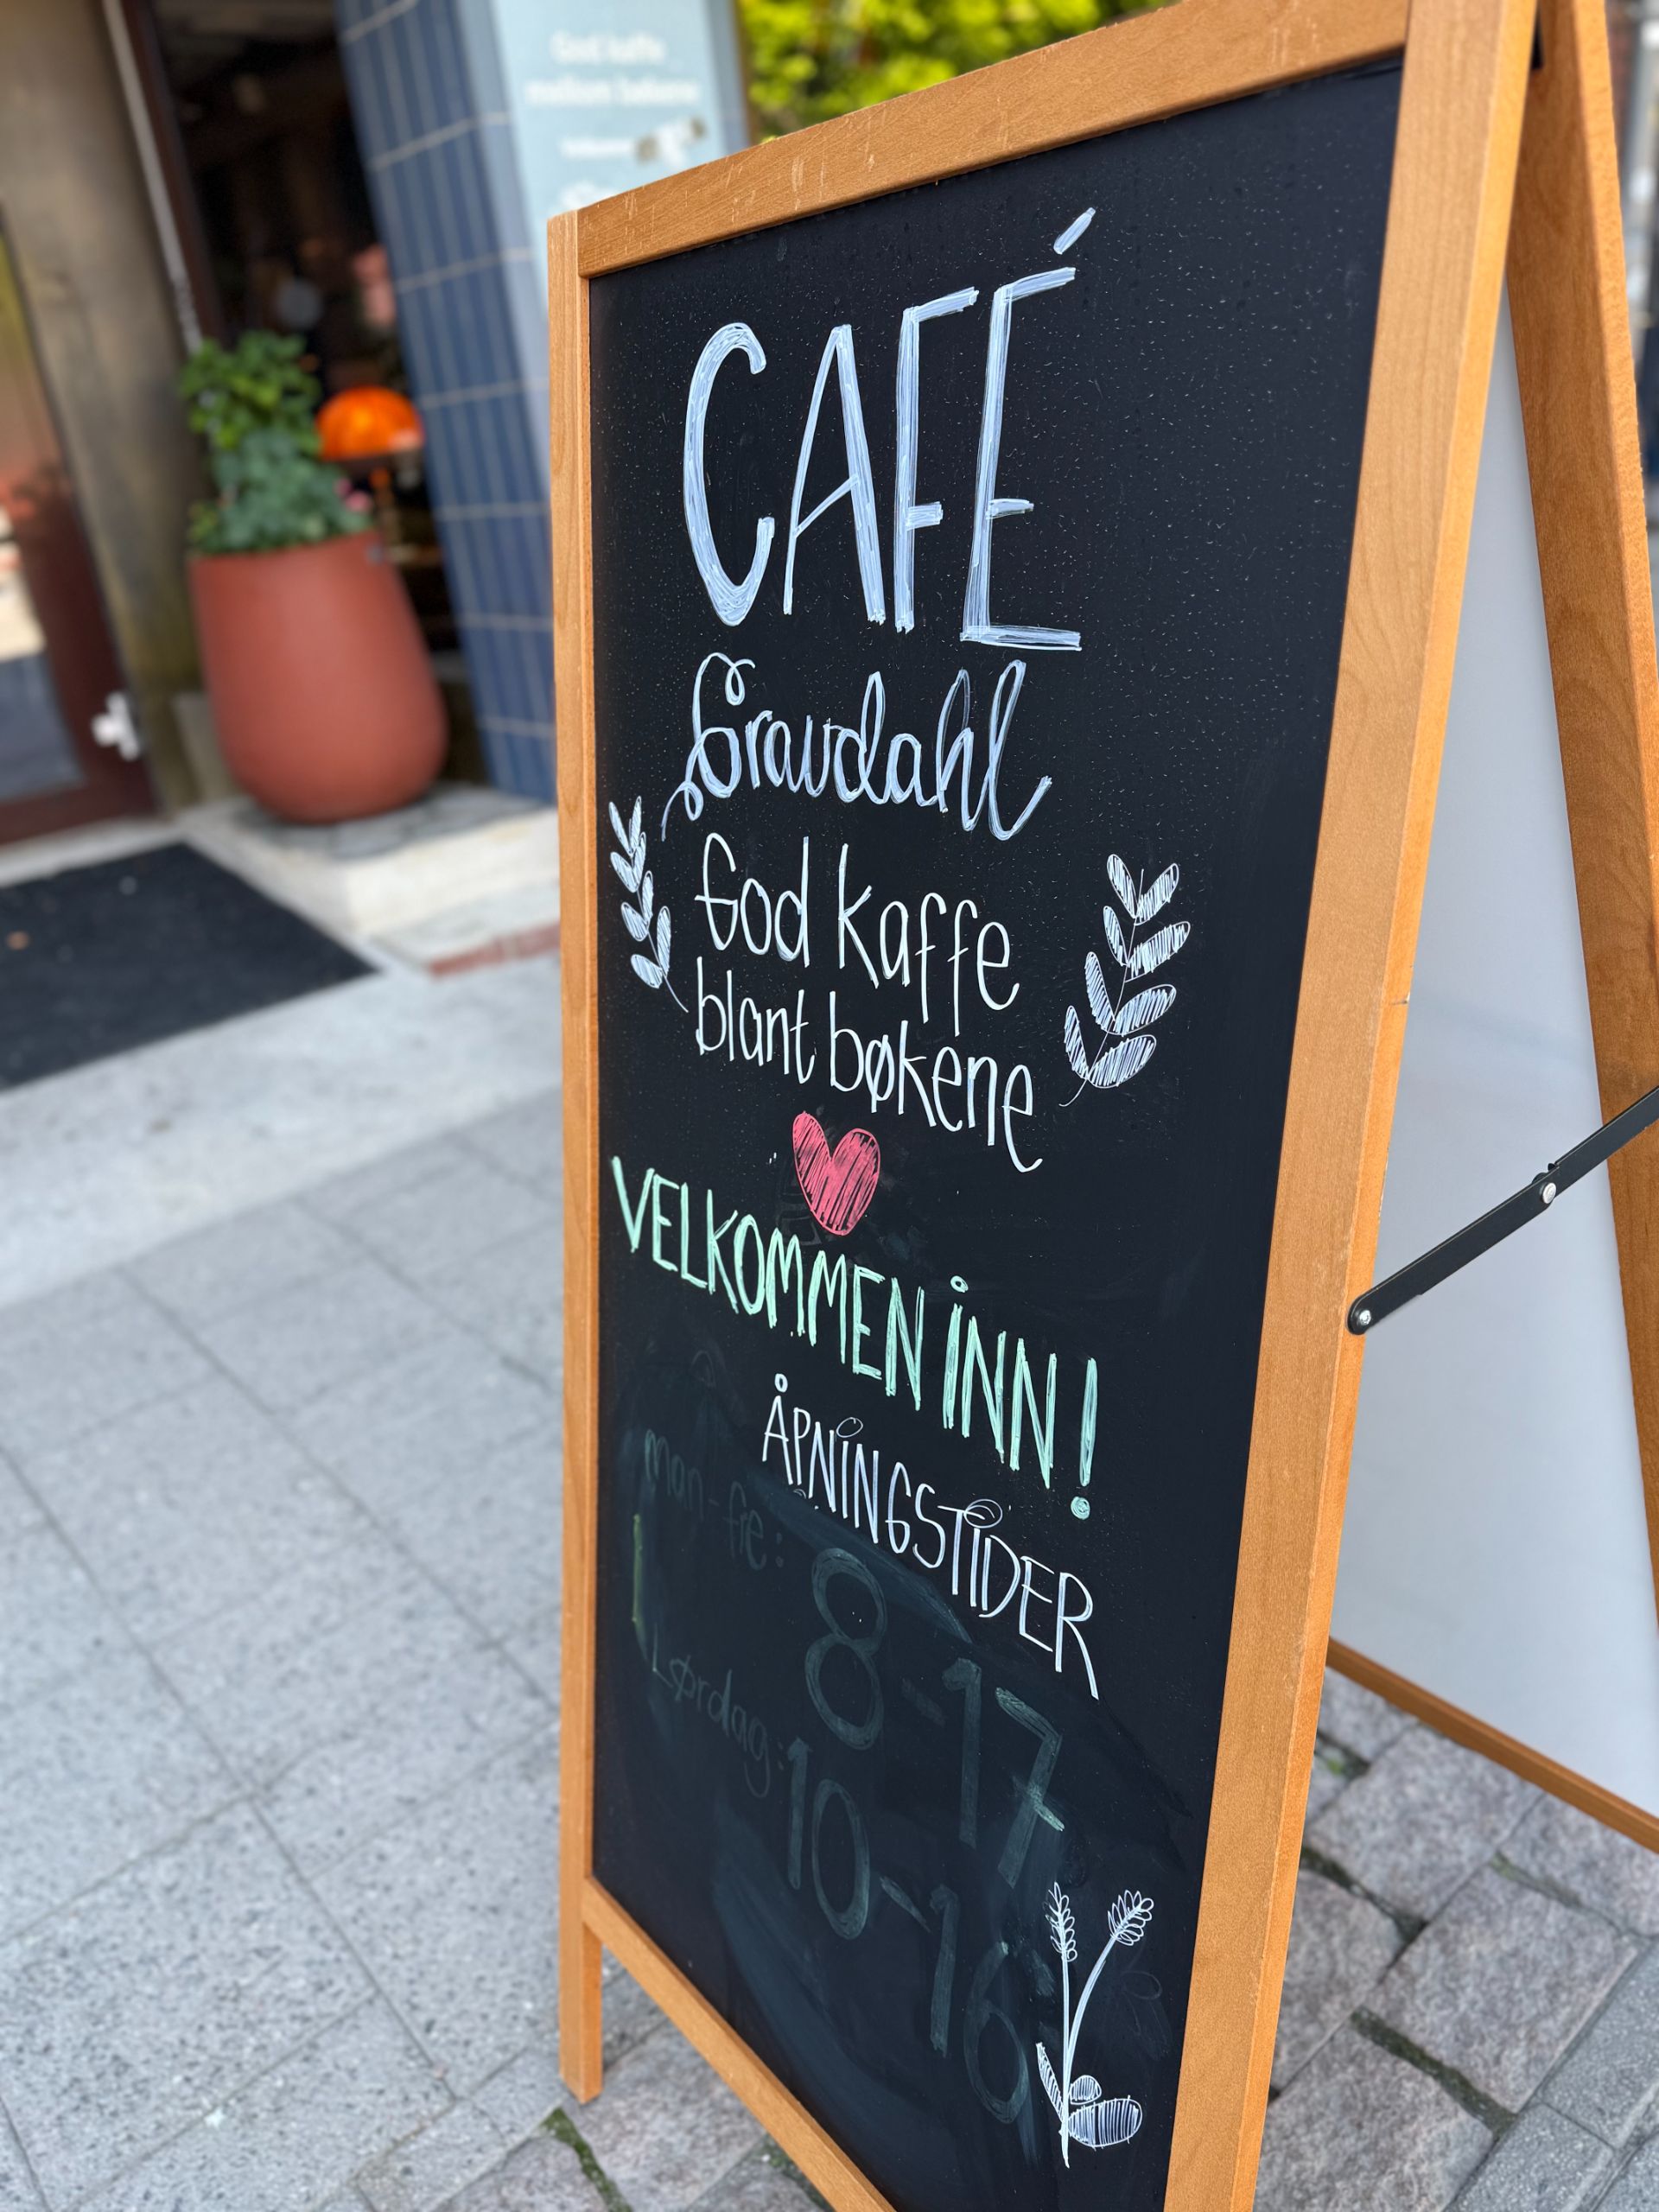 God kaffe
mellom bøkene
CAFÉ
Gravdahl
God kaffe
blant bøkene
VELKOMMEN INN!
ÅPNINGSTIDER
man-fre:
8-17
Lørdag:
10-16